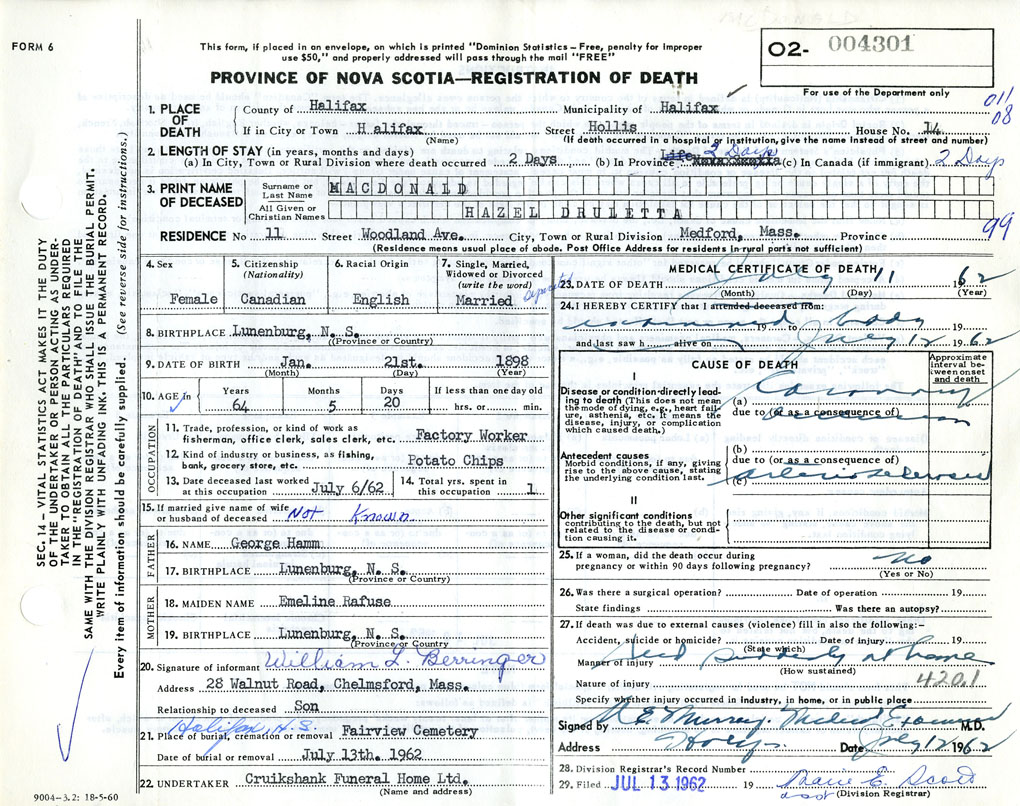 McDONALD
FORM 6
This form, if placed in an envelope, on which is printed "Dominion Statistics – Free, penalty for improper
use $50," and properly addressed will pass through the mail "FREE"
PROVINCE OF NOVA SCOTIA—REGISTRATION OF DEATH
O2- 004301
For use of the Department only
011
08
1. PLACE OF DEATH
County of Halifax Municipality of Halifax
If in City or Town Halifax Street Hollis House No. 14
(Name) (If death occurred in a hospital or institution, give the name instead of street and number)
2. LENGTH OF STAY (in years, months and days)
(a) In City, Town or Rural Division where death occurred 2 Days (b) In Province Life Nova Scotia 2 Days (c) In Canada (if immigrant) 2 Days
3. PRINT NAME OF DECEASED
Surname or Last Name MACDONALD
All Given or Christian Names HAZEL DRULETTA
RESIDENCE No 11 Street Woodland Ave. City, Town or Rural Division Medford, Mass. Province
99
(Residence means usual place of abode. Post Office Address for residents in rural parts not sufficient)
4. Sex
Female
5. Citizenship (Nationality)
Canadian
6. Racial Origin
English
7. Single, Married, Widowed or Divorced (write the word)
Married
8. BIRTHPLACE Lunenburg, N. S.
(Province or Country)
9. DATE OF BIRTH Jan. 21st. 1898
(Month) (Day) (Year)
10. AGE In
Years Months Days If less than one day old
64 5 20 hrs. or min.
OCCUPATION
11. Trade, profession, or kind of work as
fisherman, office clerk, sales clerk, etc. Factory Worker
12. Kind of industry or business, as fishing,
bank, grocery store, etc. Potato Chips
13. Date deceased last worked at this occupation July 6/62
14. Total yrs. spent in this occupation 1
15. If married give name of wife
or husband of deceased Not Known
FATHER
16. NAME George Hamm
17. BIRTHPLACE Lunenburg, N. S.
(Province or Country)
MOTHER
18. MAIDEN NAME Emeline Rafuse
19. BIRTHPLACE Lunenburg, N. S.
(Province or Country)
20. Signature of informant William L. Berringer
Address 28 Walnut Road, Chelmsford, Mass.
Relationship to deceased Son
Halifax, N.S.
21. Place of burial, cremation or removal Fairview Cemetery
Date of burial or removal July 13th. 1962
22. UNDERTAKER Cruikshank Funeral Home Ltd.
(Name and address)
9004—3.2: 18-5-60
MEDICAL CERTIFICATE OF DEATH
23. DATE OF DEATH July 11 1962
(Month) (Day) (Year)
24. I HEREBY CERTIFY that I attended deceased from:
examined 19 to body 19
and last saw h alive on July 12 1962
CAUSE OF DEATH
Approximate interval between onset and death
I
Disease or condition directly leading to death (This does not mean the mode of dying, e.g., heart failure, asthenia, etc. It means the disease, injury, or complication which caused death.)
(a) Coronary
due to (or as a consequence of)
Antecedent causes
Morbid conditions, if any, giving rise to the above cause, stating the underlying condition last.
(b)
due to (or as a consequence of)
(c) arteriosclerosis
II
Other significant conditions
contributing to the death, but not related to the disease or condition causing it.
25. If a woman, did the death occur during
pregnancy or within 90 days following pregnancy? No
(Yes or No)
26. Was there a surgical operation? Date of operation 19
State findings Was there an autopsy?
27. If death was due to external causes (violence) fill in also the following:–
Accident, suicide or homicide? Date of injury 19
(State which)
Manner of injury died suddenly at home
(How sustained)
Nature of injury 420.1
Specify whether injury occurred in industry, in home, or in public place
Signed by R E Murray Medical Examiner M.D.
Address Date July 12 1962
28. Division Registrar's Record Number
29. Filed JUL 13 1962 19
asst (Division Registrar)
SEC. 14 – VITAL STATISTICS ACT MAKES IT THE DUTY
OF THE UNDERTAKER OR PERSON ACTING AS UNDER-
TAKER TO OBTAIN ALL THE PARTICULARS REQUIRED
IN THE "REGISTRATION OF DEATH" AND TO FILE THE
SAME WITH THE DIVISION REGISTRAR WHO SHALL ISSUE THE BURIAL PERMIT.
WRITE PLAINLY WITH UNFADING INK. THIS IS A PERMANENT RECORD.
Every item of information should be carefully supplied. (See reverse side for instructions.)